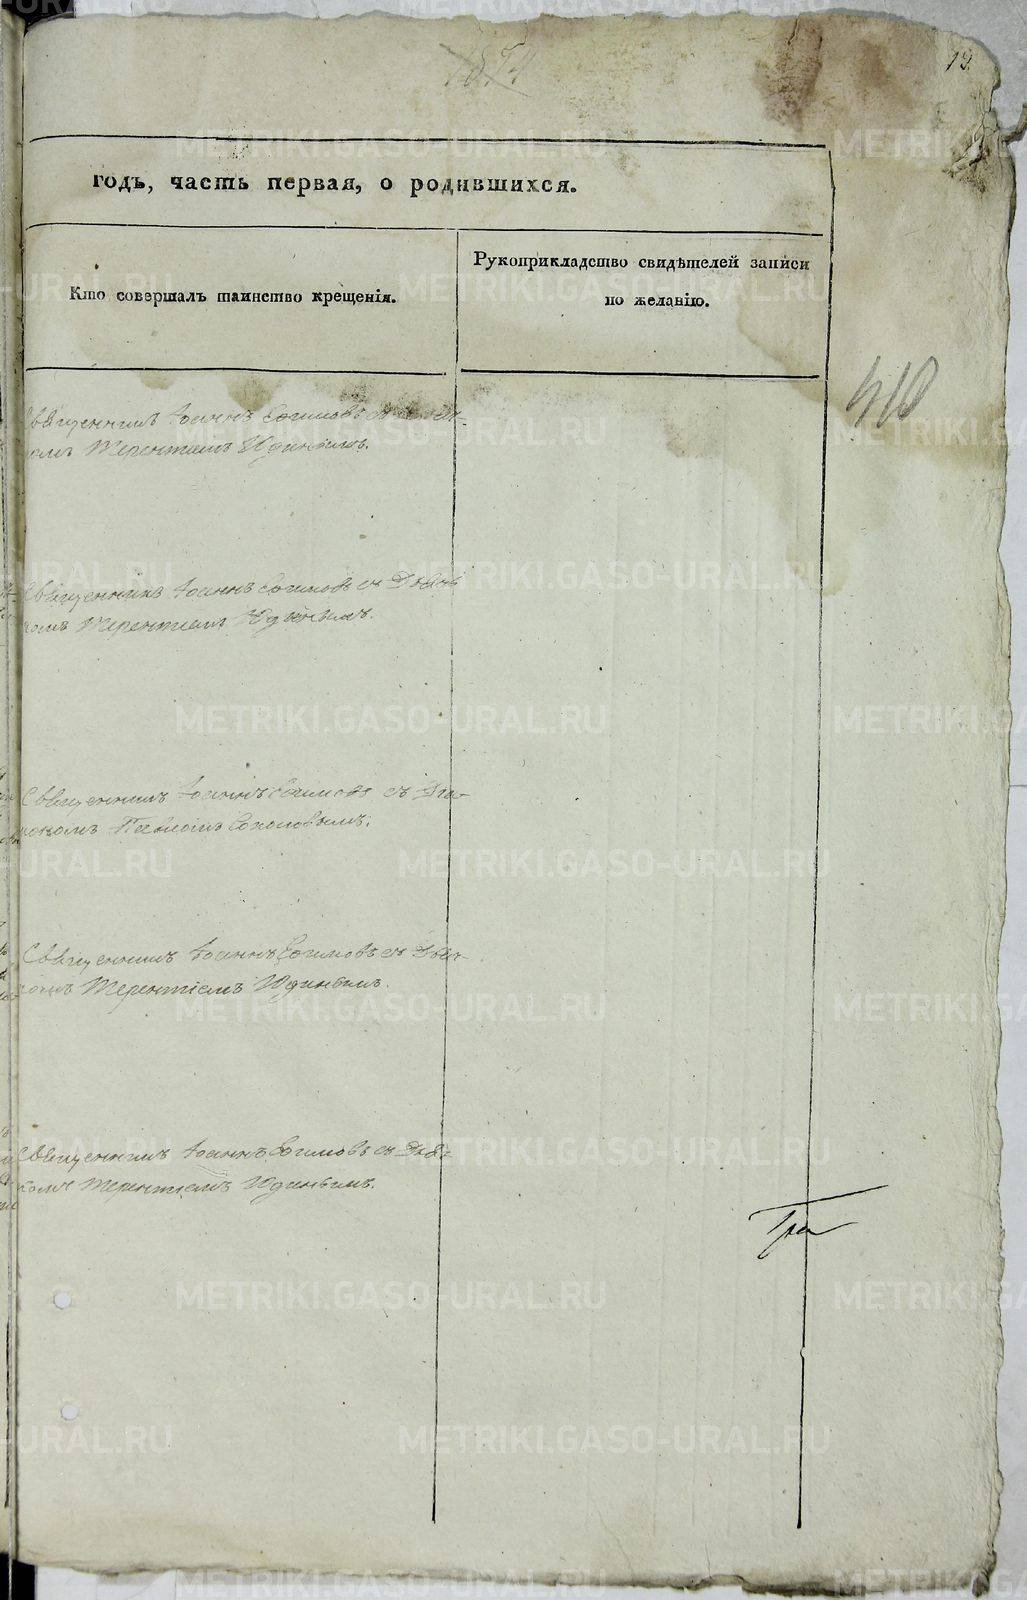 годъ, часть первая, о родившихся.
Кто совершалъ таинство крещенія.
Рукоприкладство свидѣтелей записи
по желанію.
410
Священникъ Іоаннъ Ефимовъ съ
Терентіемъ Юдинымъ.
Священникъ Іоаннъ Ефимовъ съ Дьяч
комъ Терентіемъ Юдинымъ.
Священникъ Іоаннъ Ефимовъ съ Діа-
кономъ Павломъ Соколовымъ.
Священникъ Іоаннъ Ефимовъ съ Дьяч-
комъ Терентіемъ Юдинымъ.
Священникъ Іоаннъ Ефимовъ съ Дьяч-
комъ Терентіемъ Юдинымъ.
METRIKI.GASO-URAL.RU